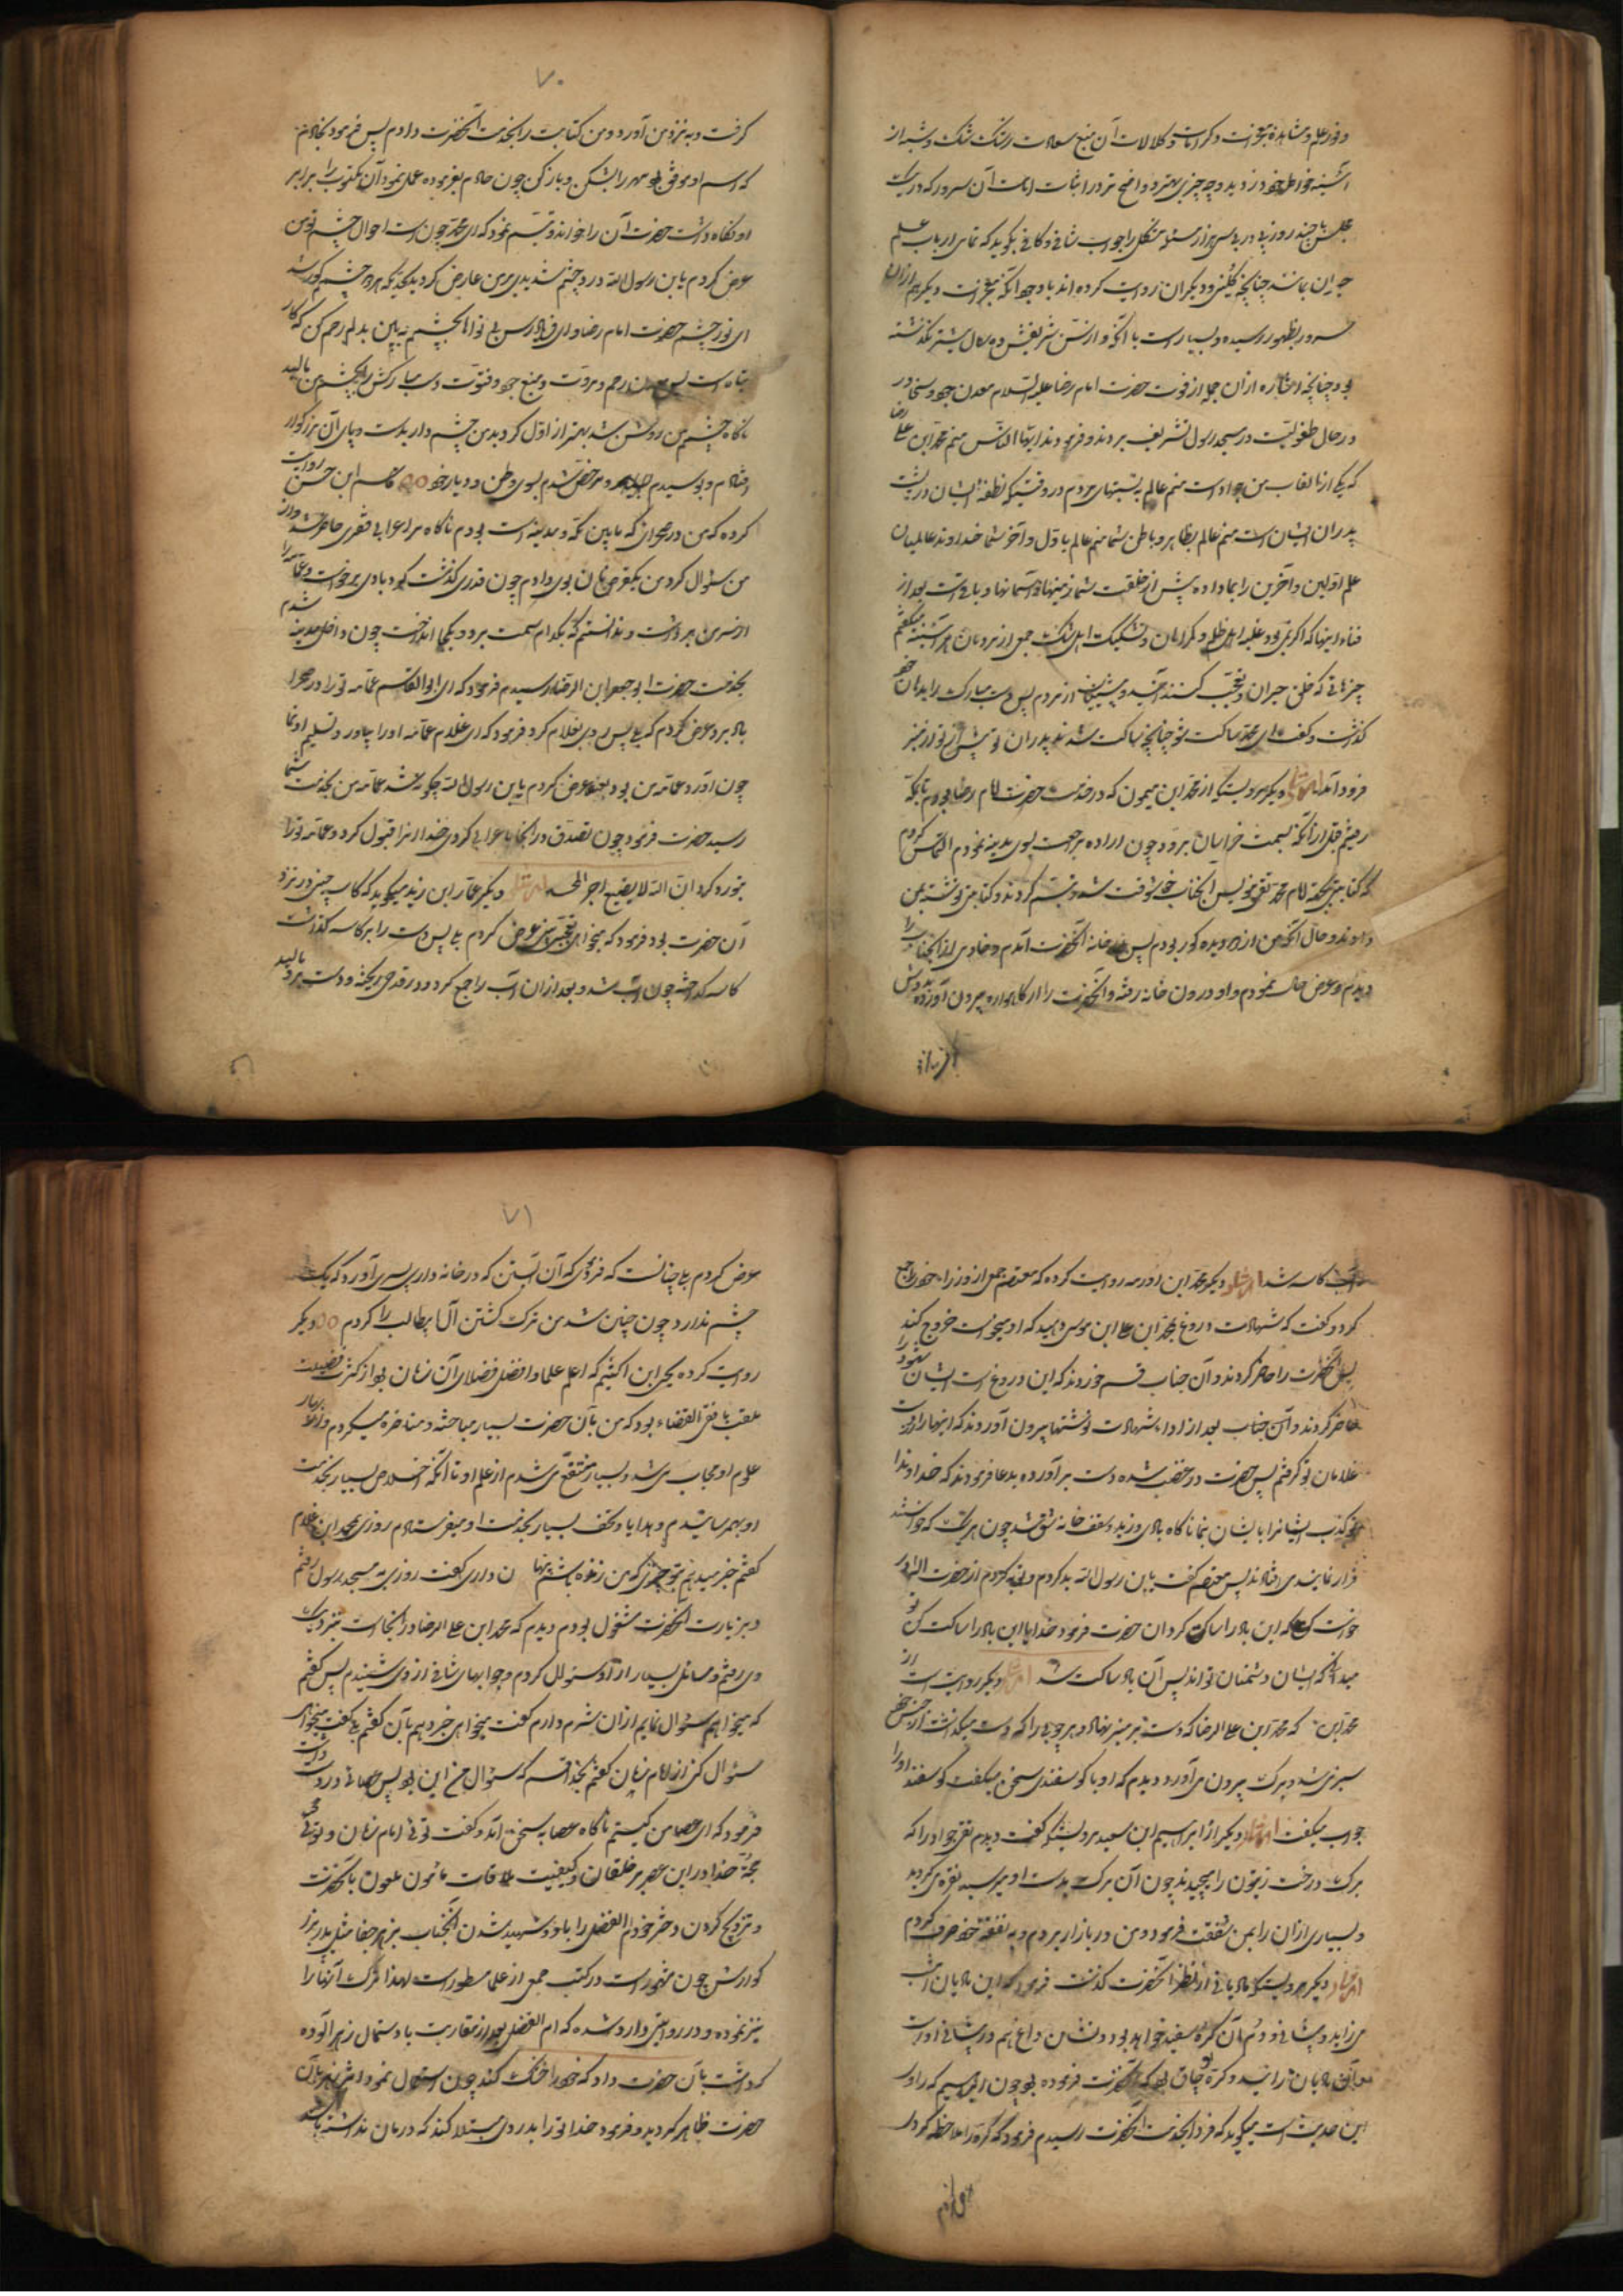 و نور علم و مشاهده معجزات و کرامات و کمالات آن منبع سعادت زنک شک و شبه از
مجلس با چند روز پی در پی سی هزار مسئله مشکل را جواب شافی و کافی بگوید که تمامی ارباب علم
حیران بمانند چنانچه کلینی و دیگران روایت کرده اند با وجود آنکه معجزات دیگر هم از آن
سرور بظهور رسیده و بسیار است با آنکه از سن شریفش ده سال بیشتر نگذشته
بود چنانچه از آن جمله از فوت حضرت امام رضا علیه السلام معدن جود و سخا در
در حال طفولیت در مسجد رسول تشریف بردند و فرمودند ایها الناس منم محمد ابن علی رضا
که یکی از القاب من جواد است منم عالم به نسبتهای مردم در وقتیکه نطفه ایشان در پشت
پدران ایشان است منم عالم بظاهر و باطن شما منم عالم باول و آخر شما خداوند عالمیان
علم اولین و آخرین را بما داده پیش از خلقت شما و زمینها و آسمانها و باقی است بعد از
فناء اینها که اگر نمی بود غلبه اهل ظلم و گمراهان و تشکیک اهل شک جمعی از مردمان هر آینه میگفتم
چیزهائی که خلق حیران و تعجب کنند از مردم پس دست مبارک را بدهان خود
گذاشت و گفت ای محمد ساکت شو چنانچه ساکت شدند پدران تو پیش از تو از منبر
فرود آمد دیگر مرویست از محمد ابن میمون که در خدمت حضرت امام رضا بودم بمکه
رفتم قبل از آنکه بسمت خراسان برود چون اراده مراجعت بسوی مدینه نمودم التماس کردم
که کتابتی بجهة امام محمد تقی بنویس آنجناب تبسم کردند و کتابتی نوشته بمن
دادند و حال آنکه من از دو دیده کور بودم پس بخانه آنحضرت آمدم و خادمی از آنجناب را
دیدم و عرض حال نمودم و او درون خانه رفته و آنحضرت را از گاهواره بیرون آورده بدوش
۷۰
گرفت و به نزد من آورد و من کتابت را بخدمت آنحضرت دادم پس فرمود بخادم
که اسم او موفق بود مهر را بشکن و باز کن چون خادم بفرموده عمل نمود آن مکتوب را برابر
او نگاه داشت حضرت آن را خواند و تبسم نمود که ای محمد چون است احوال چشم تو من
عرض کردم یا بن رسول الله درد چشم شدیدی بمن عارض گردید بحدیکه هر دو چشم کور شد
ای نور چشم حضرت امام رضا و ای فریادرس بی نوایان بچشم به بین بدلم رحم کن که کار
تباه است پس معدن رحم و مروت و منبع جود و فتوت دست مبارکش را بچشم من مالید
ناگاه چشم من روشن شد بهتر از اول گردید من چشم دار بدست و پای آن بزرگوار
افتادم و بوسیدم و مرخص شدم بسوی وطن و دیار خود قاسم ابن حسن روایت
کرده که من در صحرائی که مابین مکه و مدینه است بودم ناگاه مرا اعرابی فقیری حاضر شد و از
من سئوال کرد من یکقرص نان بوی دادم چون قدری گذشت گردبادی برخواست و عمامه را
از سر من برداشت و ندانستم که بکدام سمت برد و بکجا انداخت چون داخل مدینه شدم
بخدمت حضرت ابو جعفر ابن الرضا رسیدم فرمود که ای ابوالقاسم عمامه تو را در صحرا
باد برد عرض کردم که بلی پس روی بغلام کرد فرمود که ای غلام عمامه او را بیاور و تسلیم او نما
چون آورد عمامه من بود بعینه عرض کردم یا بن رسول الله چگونه شد عمامه من بخدمت شما
رسید حضرت فرمود چون تصدق در آنجا باعرابی کردی خدا از تو قبول کرد و عمامه تو را
بتو رد کرد ان الله لا یضیع اجر المحسنین دیگر عمار ابن زید میگوید که کاسه چینی در نزد
آن حضرت بود فرمود که میخواهی تعجب کنی عرض کردم بلی پس دست را بر کاسه گذاشت
کاسه گداخته چون آب شد و بعد از آن آب را جمع کرد و در قدحی ریخته و دست برو مالید
آب کاسه شد دیگر محمد ابن اورمه روایت کرده که معتصم جمعی از وزراء خود را جمع
کرد و گفت که شهادت دروغ بمحمد ابن علی ابن موسی دهید که او میخواست خروج کند
پس آنحضرت را حاضر کردند و آن جناب قسم خوردند که این دروغ است ایشان شهود را
حاضر کردند و آن جناب بعد از ادای شهادت نوشتها بیرون آوردند که اینها را از دست
غلامان تو گرفتم پس حضرت در غضب شده دست برآورده بدعا فرمودند که خداوندا
تو کذب ایشانرا بایشان بنما ناگاه بادی وزید و سقف خانه شق شد چون هر یک که خواستند
فرار نمایند می افتادند پس معتصم گفت یا بن رسول الله بد کردم و توبه کردم از حضرت الله
خواست کن که این باد را ساکت گردان حضرت فرمود خدایا این باد را ساکت کن تو
میدانی که ایشان دشمنان تو اند پس آن باد ساکت شد دیگر روایت است از
محمد ابن که محمد ابن علی الرضا که دست بر منبر نهاد و هر چوبی را که دست میگذاشت از جنس خود
سبز می شد و برگ بیرون می آورد و دیدم که او با گوسفندی سخن میگفت گوسفند او را
جواب میگفت دیگر از ابراهیم ابن سعید مرویست که گفت دیدم تقی جواد را که
برگ درخت زیتون را میچیدند چون آن برگ بدست او میرسید نقره می گردید
و بسیاری از آن را بمن شفقت فرمود و من در بازار بردم و به نفقه خود صرف کردم
دیگر مرویست که مادیانی از نظر آنحضرت گذشت فرمود که این مادیان امشب
می زاید و پیشانی و دم آن کره سفید خواهد بود و نشان داغ هم در پیشانی او است
آن مادیان زائید و کره چنان بود که آنحضرت فرموده بود چون ابراهیم که راوی
این حدیث است میگوید که فردا بخدمت آنحضرت رسیدم فرمود که کره را ملاحظه کردی
۷۱
عرض کردم بلی چنانست که فرمودی که آن آبستن که در خانه داری پسری آورد که یک
چشم ندارد چون چنین شد من ترک کشتن آل ابیطالب را کردم دیگر
روایت کرده یحیی ابن اکثم که اعلم علما و افضل فضلای آن زمان بود از کثرت فضیلت
ملقب باقضی القضاة بود که من بآن حضرت بسیار مباحثه و مناظره میکردم و از
علوم او مجاب می شد و بسیار منتفع می شدم از علم او تا آنکه اخلاص بسیار بخدمت
او بهم رسانیدم و هدایا و تحف بسیار بخدمت او میفرستادم روزی بمحمد ابن غلام
گفتم خبر میدهم بتو چیزی که من زنده باشم پنهان داری گفت روزی به مسجد رسول رفتم
و بزیارت آنحضرت مشغول بودم دیدم که محمد ابن علی الرضا در آنجاست بنزدیک
وی رفتم و مسائل بسیار از او سئوال کردم و جوابهای شافی از وی شنیدم پس گفتم
که میخواهم سئوال نمایم از آن شرم دارم گفت میخواهی خبر دهم بآن گفتم بلی گفت میخواهی
سئوال کنی از امام زمان گفتم بخدا قسم که سئوال من این بود پس عصائی در دست داشت
فرمود که ای عصا من کیستم ناگاه عصا بسخن آمد و گفت توئی امام زمان و توئی
حجة خدا در این عصر بر خلقان و کیفیت ملاقات مأمون ملعون با آنحضرت
و تزویج کردن دختر خود ام الفضل را با او و شهید شدن آنجناب بزهر جفا مثل پدر بزر
گوارش چون مشهور است در کتب جمعی از علما مسطور است لهذا ترک آنها را
نیز نموده و در روایتی وارد شده که ام الفضل بعد از مقاربت با دستمال زهر آلوده
که داشت بآن حضرت داد که خود را خشک کند چون استعمال نمود اثر زهر بآن
حضرت ظاهر گردید و فرمود خدا تو را بدردی مبتلا کند که درمان نداشته باشد